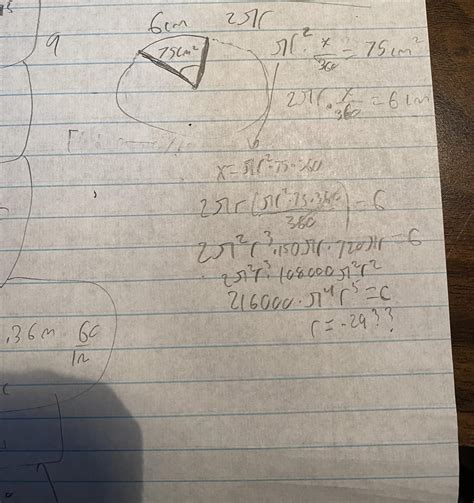 9
6cm 2πr
75cm²
πr² · x/360 = 75cm²
2πr · x/360 = 6cm
x = πr² · 75 · 360
2πr (πr² · 75 · 360 / 360) = 6
2π²r³ · 150πr · 720πr = 6
2π²r³ · 108000π²r²
216000 · π⁴r⁵ = c
r = -29??
.36m 60
1n